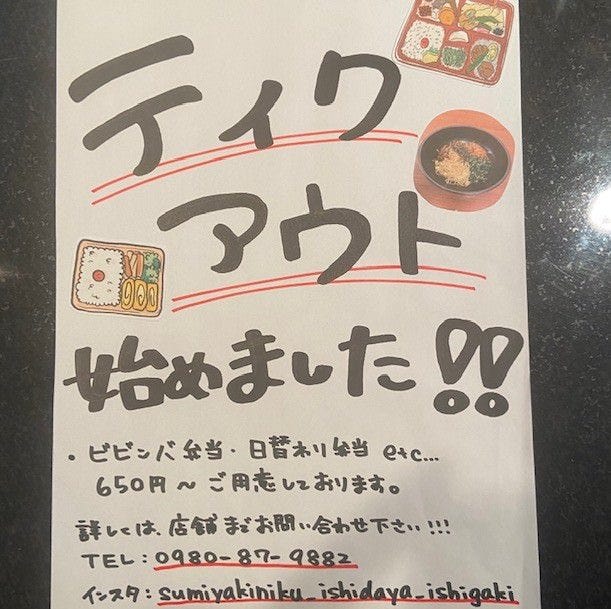 ティク
アウト
始めました!!
・ビビンバ弁当・日替わり弁当 etc...
650円〜ご用意しております。
詳しくは、店舗までお問い合わせ下さい!!!
TEL:0980-87-9882
インスタ:sumiyakiniku_ishidaya_ishigaki